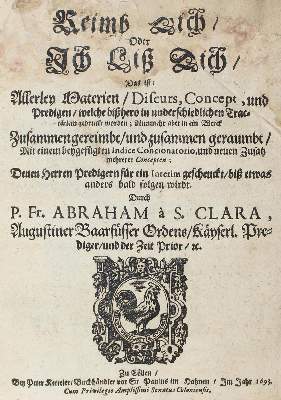 Reimb Dich/
Oder
Ich Liß Dich/
Das ist:
Allerley Materien/ Discurs, Concept, und
Predigen/ welche bißhero in underschiedlichen Trac-
tätlein gedruckt worden; Nunmehr aber in ein Werck
Zusammen gereimbt/ und zusammen geraumbt/
Mit einem beygefügten Indice Concionatorio, und neuen Zusatz
mehrerer Concepten;
Denen Herren Predigern für ein Interim geschenckt/ biß etwas
anders bald folgen wirdt.
Durch
P. Fr. ABRAHAM à S. CLARA,
Augustiner Baarfüsser Ordens/ Käyserl. Pre-
diger/ und der Zeit Prior/ ꝛc.
Zu Cöllen/
Bey Peter Ketteler/ Buchhändler vor St. Paulus im Hahnen/ Im Jahr 1693.
Cum Privilegio Amplissimi Senatus Coloniensis.